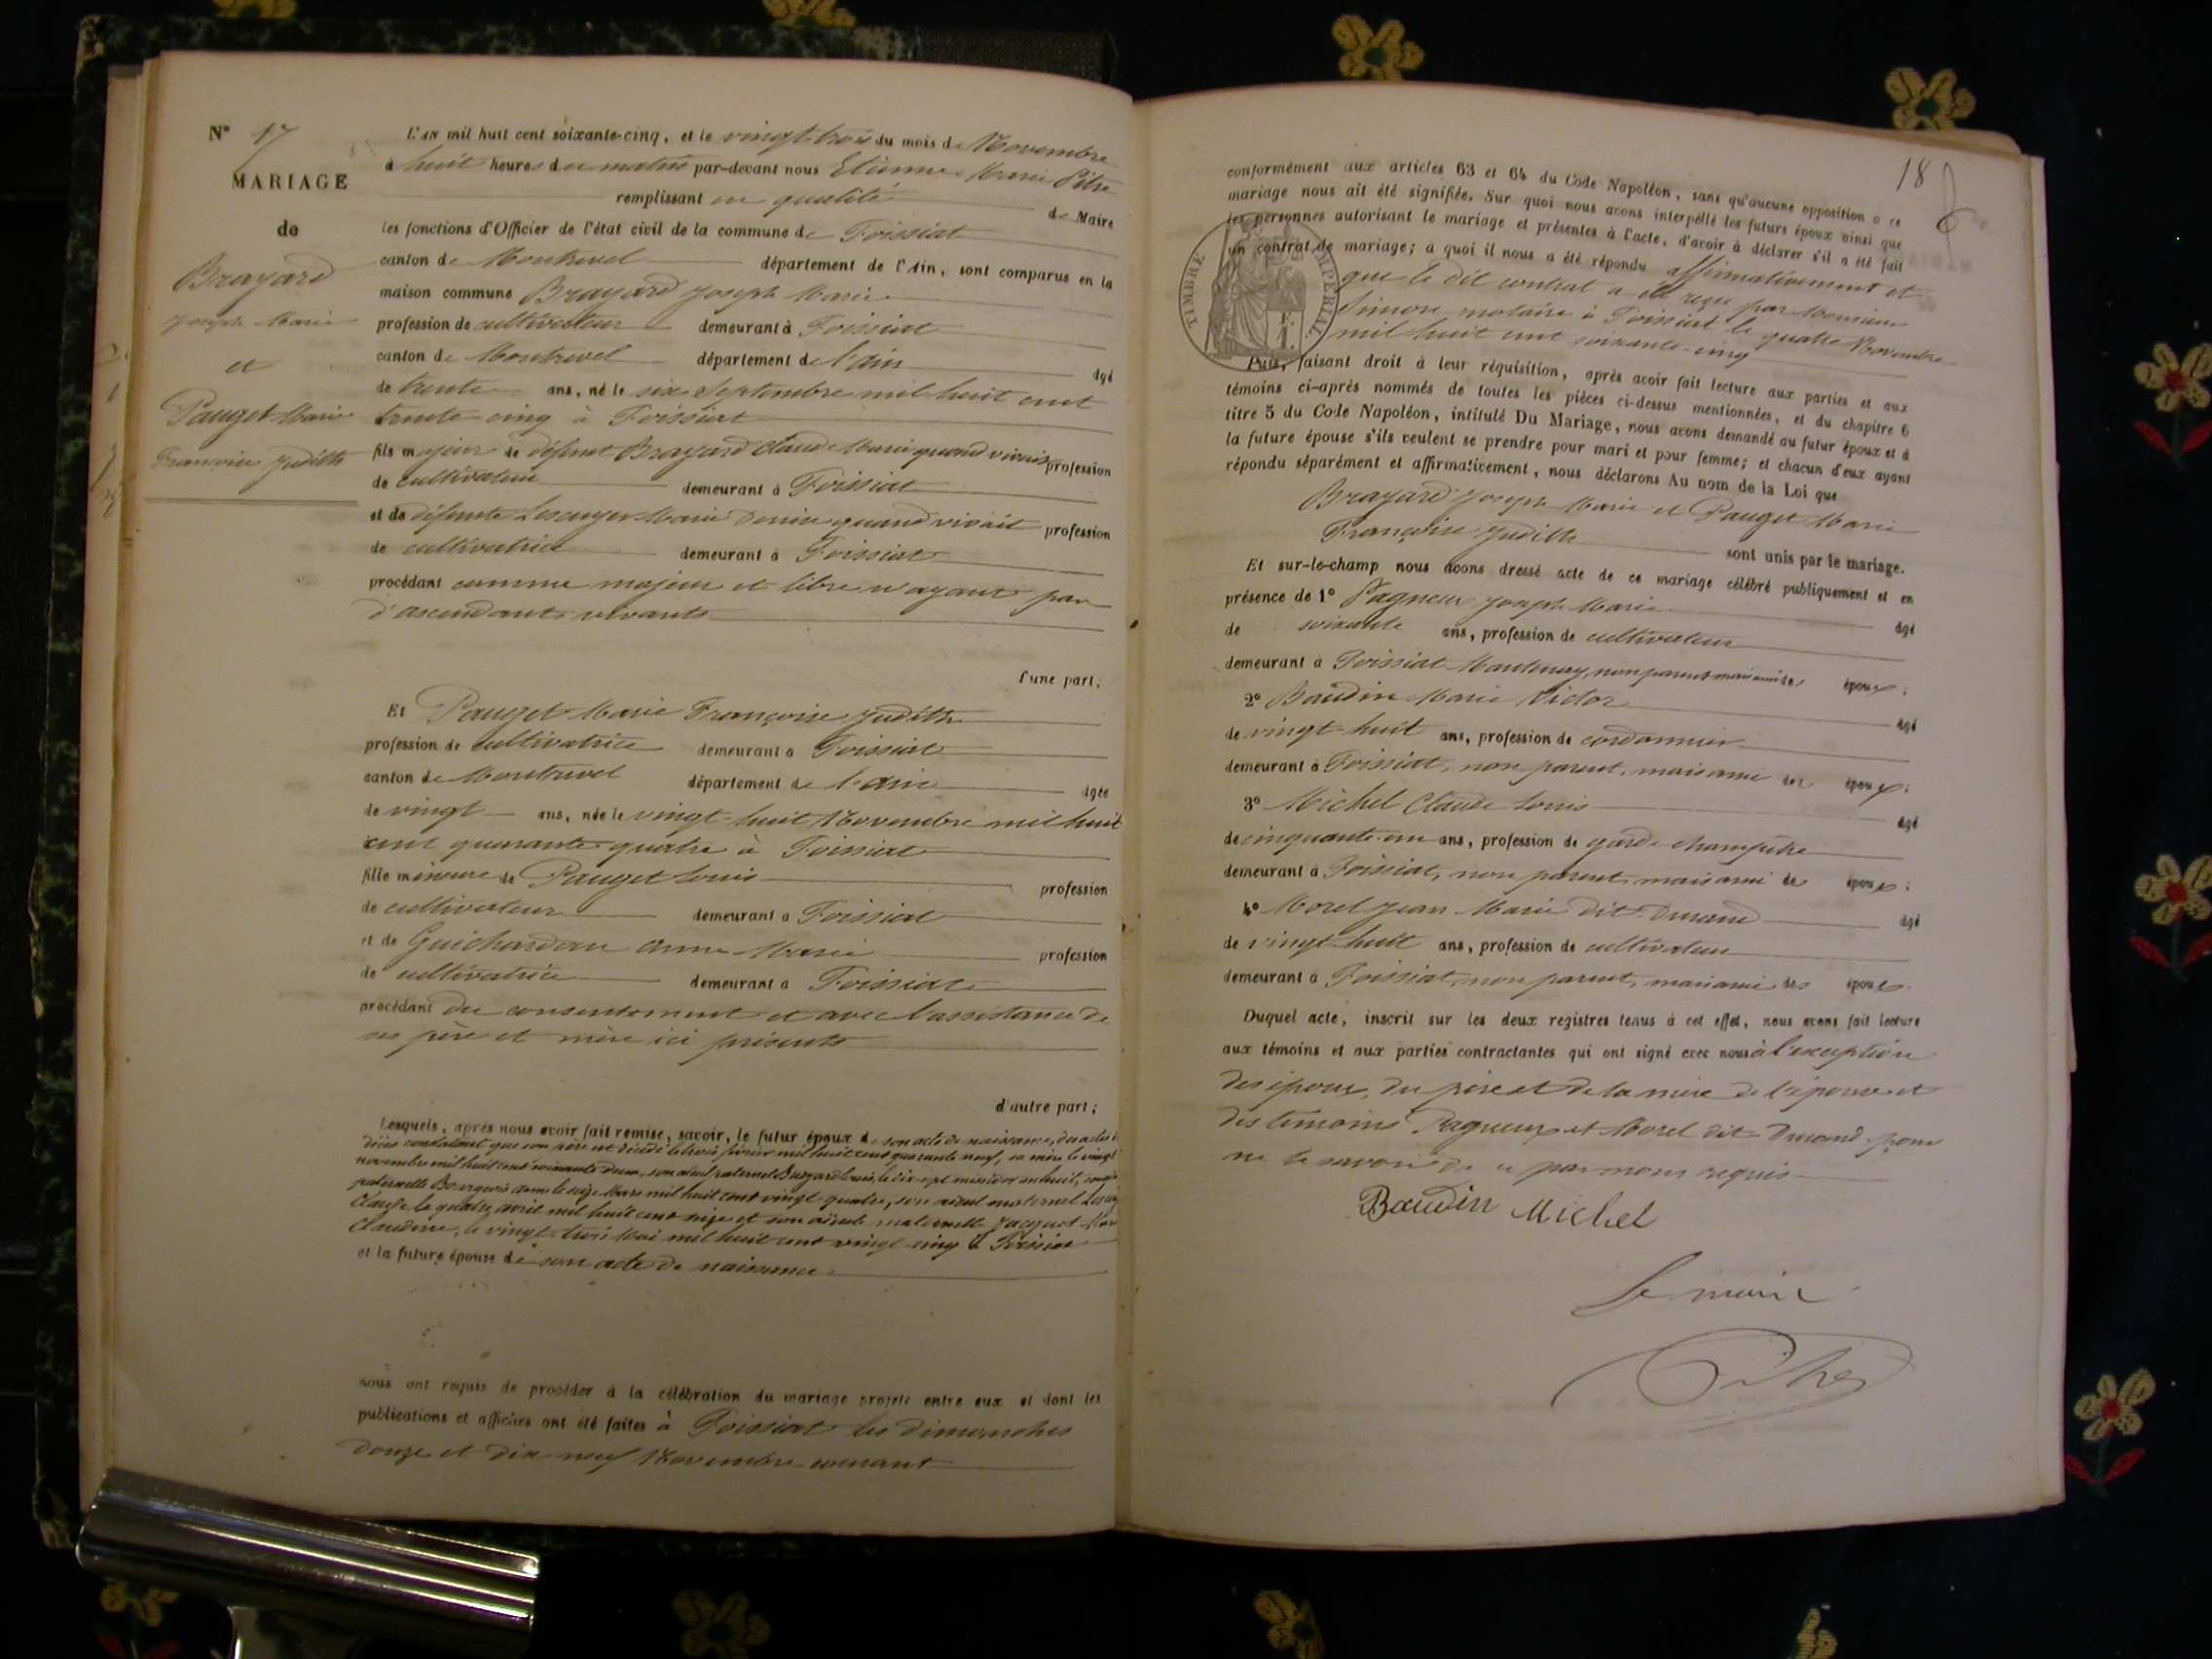 N° 17
MARIAGE
de
Brayard
Joseph Marie
et
Pauget Marie
Françoise Judith
L'AN mil huit cent soixante-cinq, et le vingt trois du mois de Novembre
à huit heures du matin par-devant nous Etienne Marie Pitre
remplissant en qualité de Maire
les fonctions d'Officier de l'état civil de la commune de Foissiat
canton de Montrevel département de l'Ain, sont comparus en la
maison commune Brayard Joseph Marie
profession de cultivateur demeurant à Foissiat
canton de Montrevel département de l'ain âgé
de trente ans, né le six Septembre mil huit cent
trente cinq à Foissiat
fils majeur de défunt Brayard Claude Marie quand vivait profession
de cultivateur demeurant à Foissiat
et de défunte Lescuyer Marie Denise quand vivait profession
de cultivatrice demeurant à Foissiat
procédant comme majeur et libre n'ayant pas
d'ascendants vivants
d'une part;
Et Pauget Marie Françoise Judith
profession de cultivatrice demeurant à Foissiat
canton de Montrevel département de l'ain âgée
de vingt ans, née le vingt huit Novembre mil huit
cent quarante quatre à Foissiat
fille mineure de Pauget Louis profession
de cultivateur demeurant à Foissiat
et de Guichardan Anne Marie profession
de cultivatrice demeurant à Foissiat
procédant du consentement et avec l'assistance de
ses père et mère ici présents
d'autre part;
Lesquels, après nous avoir fait remise, savoir, le futur époux de son acte de naissance, des actes de
décès constatant que son père est décédé le trois février mil huit cent quarante neuf, sa mère le vingt
novembre mil huit cent soixante deux, son aïeul paternel Brayard Louis, le dix sept messidor an huit,
paternelle Bourgeois le seize Mars mil huit cent vingt quatre, son aïeul maternel
Claude le quatre avril mil huit cent seize et son aïeule maternelle Jacquet
Claudine, le vingt trois Mai mil huit cent vingt cinq à Foissiat
et la future épouse de son acte de naissance
nous ont requis de procéder à la célébration du mariage projeté entre eux et dont les
publications et affiches ont été faites à Foissiat les dimanches
douze et dix neuf Novembre courant
18
conformément aux articles 63 et 64 du Code Napoléon, sans qu'aucune opposition à ce
mariage nous ait été signifiée. Sur quoi nous avons interpellé les futurs époux ainsi que
les personnes autorisant le mariage et présentes à l'acte, d'avoir à déclarer s'il a été fait
un contrat de mariage; à quoi il nous a été répondu affirmativement et
que le dit contrat a été reçu par Monsieur
Simon notaire à Foissiat le quatre Novembre
mil huit cent soixante-cinq
TIMBRE IMPÉRIAL
Puis, faisant droit à leur réquisition, après avoir fait lecture aux parties et aux
témoins ci-après nommés de toutes les pièces ci-dessus mentionnées, et du chapitre 6
titre 5 du Code Napoléon, intitulé Du Mariage, nous avons demandé au futur époux et à
la future épouse s'ils veulent se prendre pour mari et pour femme; et chacun d'eux ayant
répondu séparément et affirmativement, nous déclarons Au nom de la Loi que
Brayard Joseph Marie et Pauget Marie
Françoise Judith sont unis par le mariage.
Et sur-le-champ nous avons dressé acte de ce mariage célébré publiquement et en
présence de 1° Pagneux Joseph Marie âgé
de soixante ans, profession de cultivateur
demeurant à Foissiat Mantenay, non parent mais ami des époux;
2° Baudin Marie Victor âgé
de vingt-huit ans, profession de cordonnier
demeurant à Foissiat, non parent, mais ami des époux;
3° Michel Claude Louis âgé
de cinquante-un ans, profession de garde champêtre
demeurant à Foissiat, non parent, mais ami des époux;
4° Morel Jean Marie dit Durand âgé
de vingt huit ans, profession de cultivateur
demeurant à Foissiat, non parent, mais ami des époux.
Duquel acte, inscrit sur les deux registres tenus à cet effet, nous avons fait lecture
aux témoins et aux parties contractantes qui ont signé avec nous à l'exception
des époux, du père et de la mère de l'épouse et
des témoins Pagneux et Morel dit Durand pour
ne le savoir de ce par nous requis
Baudin Michel
Le maire
Pitre